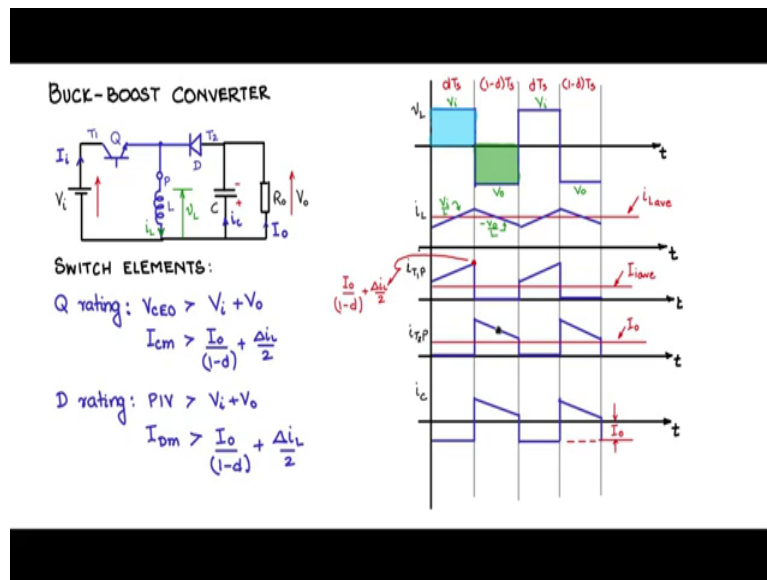 BUCK-BOOST CONVERTER
T1 Q T2
D
Ii
P
Vi L vL C - + Ro Vo
iL ic Io
SWITCH ELEMENTS:
Q rating: VCEO > Vi + Vo
Icm > Io/(1-d) + ΔiL/2
D rating: PIV > Vi + Vo
IDm > Io/(1-d) + ΔiL/2
dTs (1-d)Ts dTs (1-d)Ts
Vi Vi
vL
t
Vo Vo
iL Vi/L -Vo/L iLave
t
Io/(1-d) + ΔiL/2 iT1P Iiave
t
iT2P Io
t
ic
t
Io